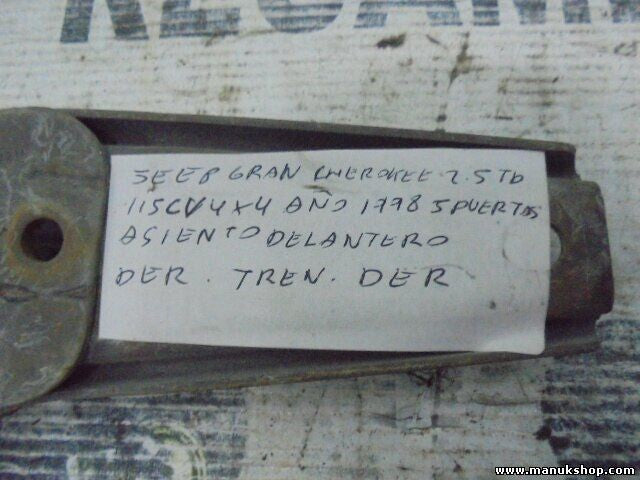 RECAMB
JEEP GRAN CHEROKEE 2.5 TD
115CV 4X4 AÑO 1998 5 PUERTAS
ASIENTO DELANTERO
DER. TREN. DER
www.manukshop.com